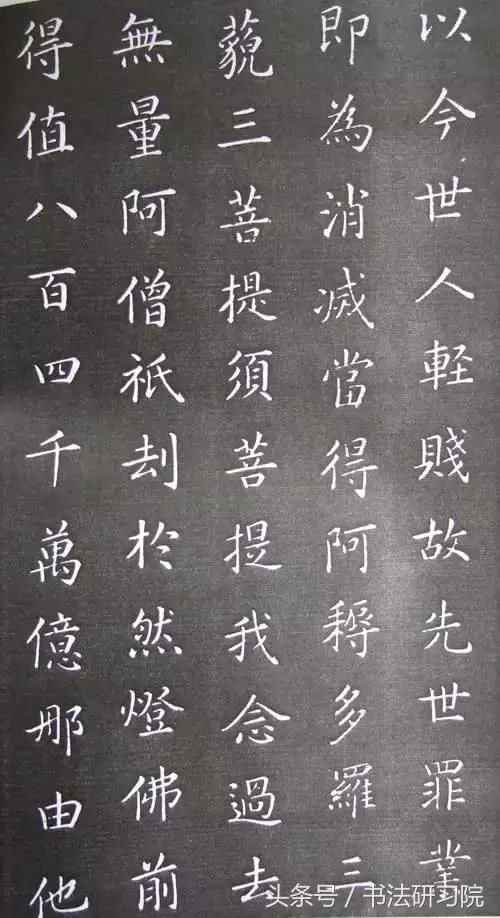 以今世人軽賤故先世罪業
即為消滅當得阿耨多羅三
藐三菩提須菩提我念過去
無量阿僧祇刼於然燈佛前
得值八百四千萬億那由他
头条号／书法研习院